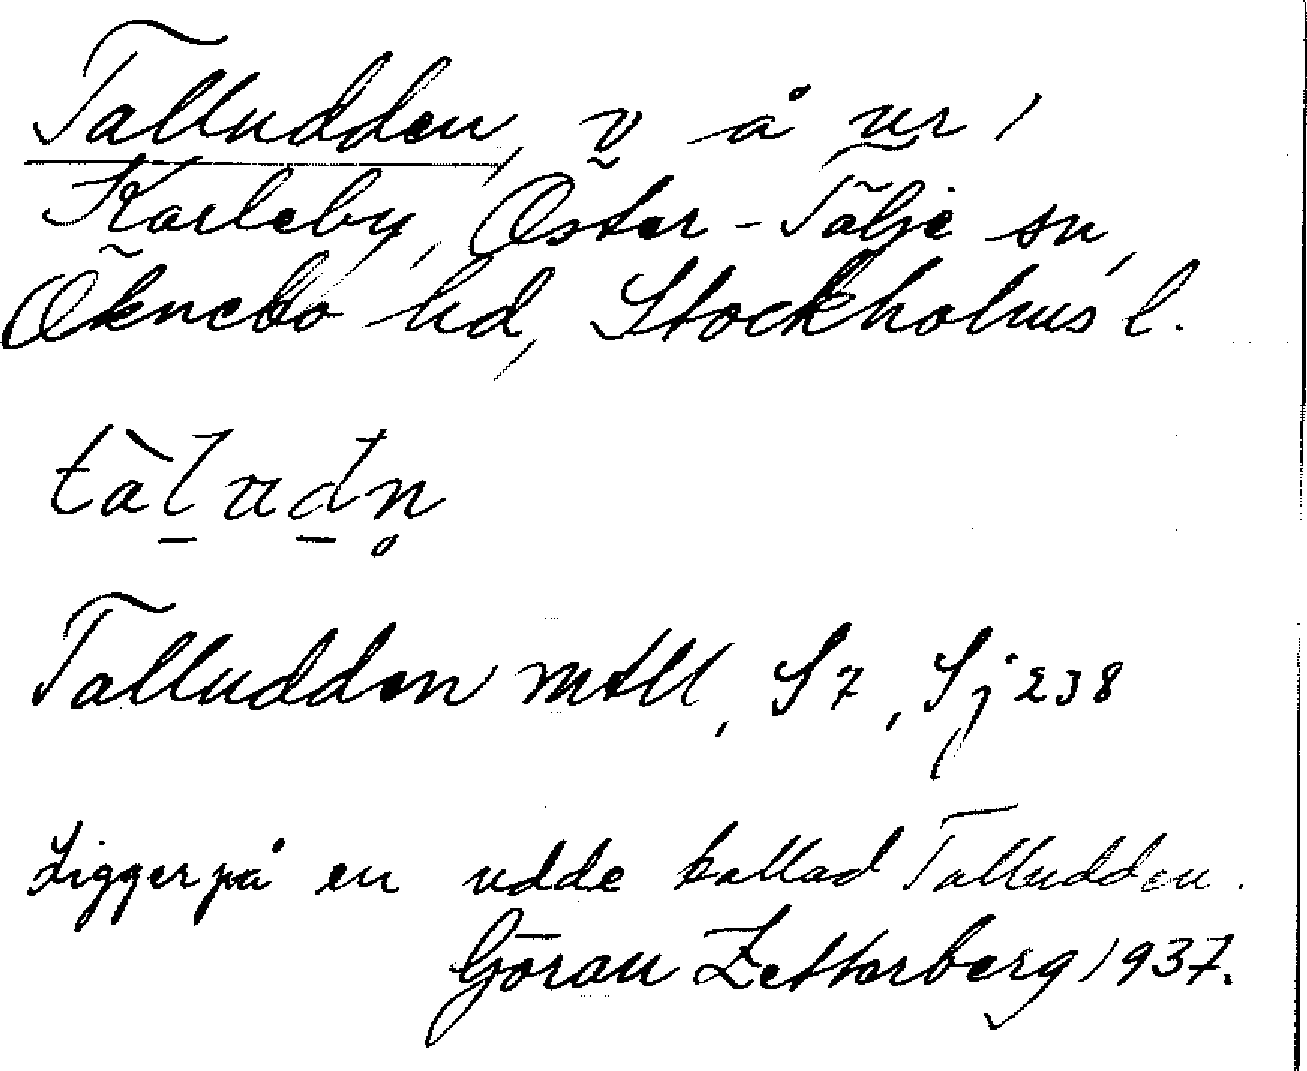 Talludden, v å ur 1
Karleby, Öster-Tälje sn,
Öknebo hd, Stockholms l.
tàl̠ud̠n̥
Talludden mtll, S7, Sj 238
Ligger på en udde kallad Talludden.
Göran Zetterberg 1937.